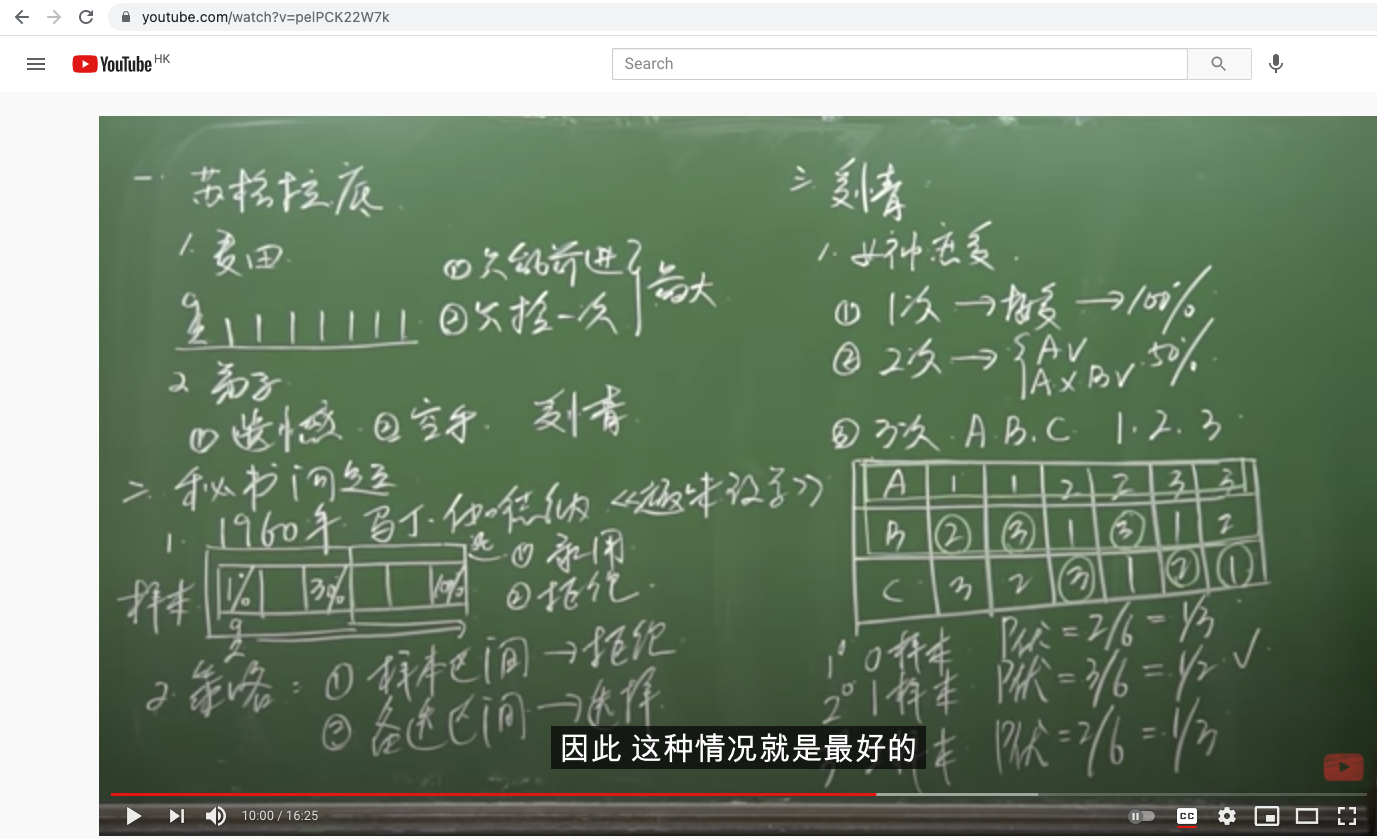 youtube.com/watch?v=pelPCK22W7k
YouTube HK
Search
一. 苏格拉底
1. 麦田
① 只能前进
② 只捡一次
最大
2. 弟子
① 遗憾 ② 空手 爱情
二. 秘书问题
1. 1960年 马丁·伽德纳 《趣味数学》
样本
1% 30% 100%
① 录用
② 拒绝
2. 策略: ① 样本区间→拒绝
② 备选区间→选择
三. 爱情
1. 女神恋爱
① 1次 → 接受 → 100%
② 2次 → A√ 50%
A×B√
③ 3次 A. B. C 1. 2. 3
A 1 1 2 2 3 3
B ② ③ 1 ③ 1 2
C 3 2 ③ 1 ② ①
1° 0样本 P优=2/6=1/3
2° 1样本 P优=3/6=1/2 √
样本 P优=2/6=1/3
因此 这种情况就是最好的
10:00 / 16:25
CC